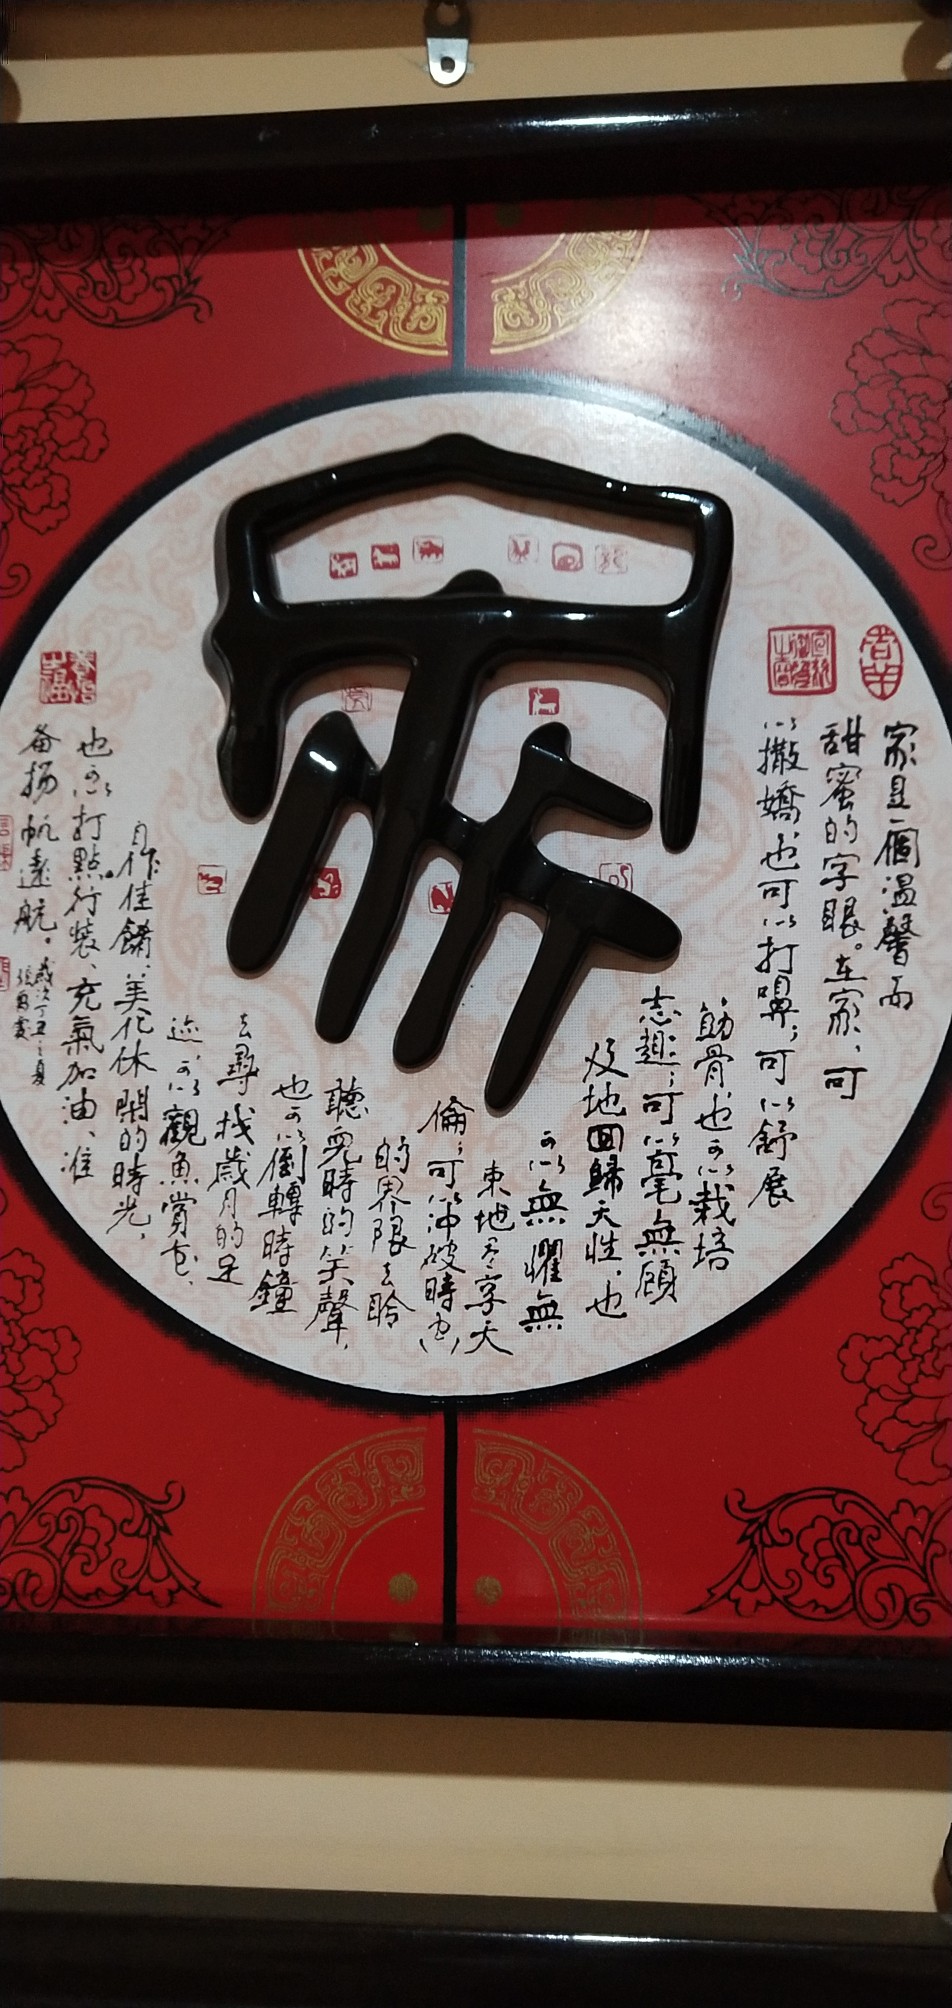 家
家是一個溫馨而
甜蜜的字眼。在家,可
以撒嬌,也可以打嚊;可以舒展
筋骨,也可以栽培
志趣;可以毫無顧
及地回歸天性,也
可以無懼無
束地尽享天
倫;可以冲破時空
的界限去聆
聽兒時的笑聲,
也可以倒轉時鐘
去尋找歲月的足
迹;可以觀魚賞花、
自作佳餚,美化休閒的時光,
也可以打點行裝、充氣加油、准
备揚帆遠航。
歲次丁丑之夏